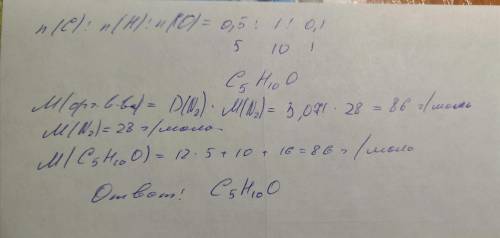 n(C): n(H): n(O) = 0,5 : 1 : 0,1
5 10 1
C₅H₁₀O
M(орг. в-ва) = D(N₂) · M(N₂) = 3,071 · 28 = 86 г/моль
M(N₂) = 28 г/моль
M(C₅H₁₀O) = 12 · 5 + 10 + 16 = 86 г/моль
Ответ: C₅H₁₀O